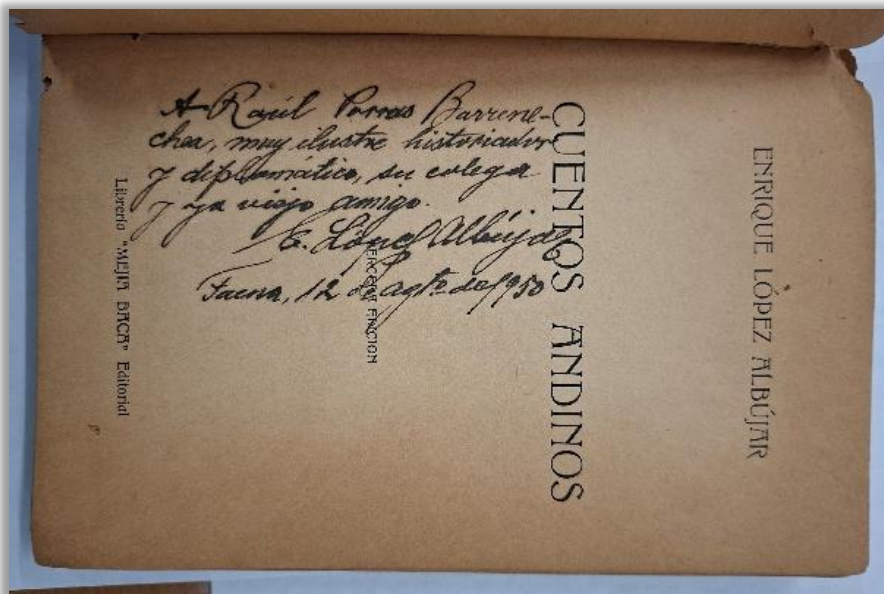 ENRIQUE LÓPEZ ALBÚJAR
CUENTOS ANDINOS
TERCERA EDICION
Librería "MEJIA BACA" Editorial
A Raúl Porras Barrene-
chea, muy ilustre historiador
y diplomático, su colega
y ya viejo amigo.
E. López Albújar
Tacna, 12 de agto de 1950